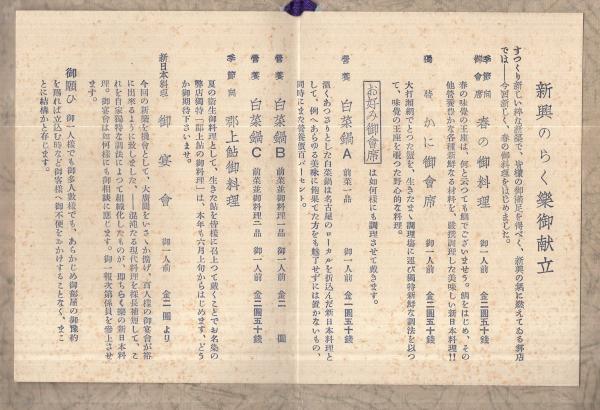 新興のらく樂御献立
すつくり新しい粋な新築で、皆様の御満足を得べく、新興の気に燃えてゐる弊店
では――今回新しく、春の御料理をはじめました。
季節向
御會席 春の御料理 御一人前 金二圓五十錢
春の味覺の王座は、何と云つても鯛でございませう。鯛をはじめ、その
他營養豊かな各種新鮮なる材料を、嚴撰調理した美味しい新日本料理!!
獨特 かに御會席 御一人前 金二圓五十錢
大打瀬網でとつた蟹を、生きたまゝ調理場に運び獨特新鮮な調法を以つ
て、味覺の王座を覗つた野心的な料理。
お好み御會席 は如何樣にも調理させて戴きます。
營養 白菜鍋A 前菜一品 御一人前 金一圓五十錢
濃くあつさりとした白菜鍋は名古屋のローカルを折込んだ新日本料理と
して、例へあらゆる美味に飽果てた方をも魅了せずには置かないもの、
同時にまた營養價百パーセント。
營養 白菜鍋B 前菜並御料理一品 御一人前 金二圓
營養 白菜鍋C 前菜並御料理二品 御一人前 金二圓五十錢
季節向 郡上鮎御料理
夏の衛生御料理として、生きた鮎を皆樣に召上つて戴くことでお名染の
弊店獨特「郡上鮎の御料理」は、本年も六月上旬からはじめます、どう
か御期待下さいませ。
新日本料理 御宴會 御一人前 金二圓より
今回の新築を機會として、大廣間をいさゝか擴げ、百人樣の御宴會が裕
に出來るやうに致しました、――混沌たる現代料理を採長補短して、こ
れを自家獨特な調法によつて組織化したものが、即ちらく樂の新日本料
理。御宴會は如何樣にも御相談に應じます。御一報次第係員を參上させ
ます。
御願ひ 御一人樣でも御多人數樣でも、あらかじめ御部屋の御豫約
を賜れば立込む時など御客樣へ御不便をおかけすることなく、まこ
とに結構かと存じます。